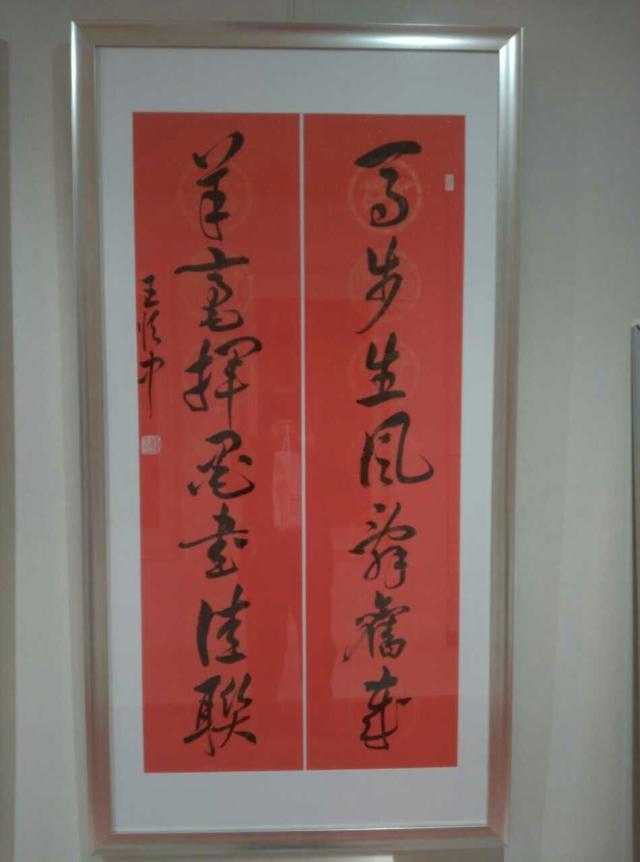 马步生风辞旧岁
羊毫挥墨书佳联
王顺中